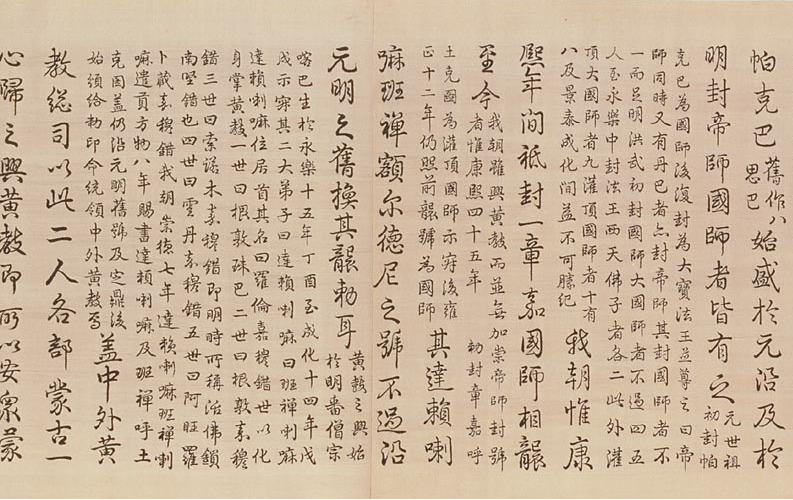 帕克巴舊作八思巴始盛於元沿及於
明封帝師國師者皆有之元世祖初封帕
克巴為國師後復封為大寶法王並尊之曰帝
師同時又有丹巴者亦封帝師其封國師者不
一而足明洪武初封國師大國師者不過四五
人至永樂中封法王西天佛子者各二此外灌
頂大國師者九灌頂國師者十有
八及景泰成化間益不可勝紀我朝惟康
熙年間祗封一章嘉國師相襲
至今我朝雖興黃教而並無加崇帝師封號
者惟康熙四十五年勅封章嘉呼
土克圖為灌頂國師示寂後雍
正十二年仍照前襲號為國師其達賴喇
嘛班禪額尔德尼之號不過沿
元明之舊換其襲勅耳黃教之興始於明番僧宗
喀巴生於永樂十五年丁酉至成化十四年戊
戌示寂其二大弟子曰達賴喇嘛曰班禪喇嘛
達賴喇嘛位居首其名曰羅倫嘉穆錯世以化
身掌黃教一世曰根敦珠巴二世曰根敦嘉穆
錯三世曰索諾木嘉穆錯即明時所稱活佛鎖
南堅錯也四世曰雲丹嘉穆錯五世曰阿旺羅
卜藏嘉穆錯我朝崇德七年達賴喇嘛班禪喇
嘛遣貢方物八年賜書達賴喇嘛及班禪呼土
克圖盖仍沿元明舊號及定鼎後
始頒給勅印命統領中外黃教焉盖中外黃
教總司以此二人各部蒙古一
心歸之興黃教即所以安衆蒙